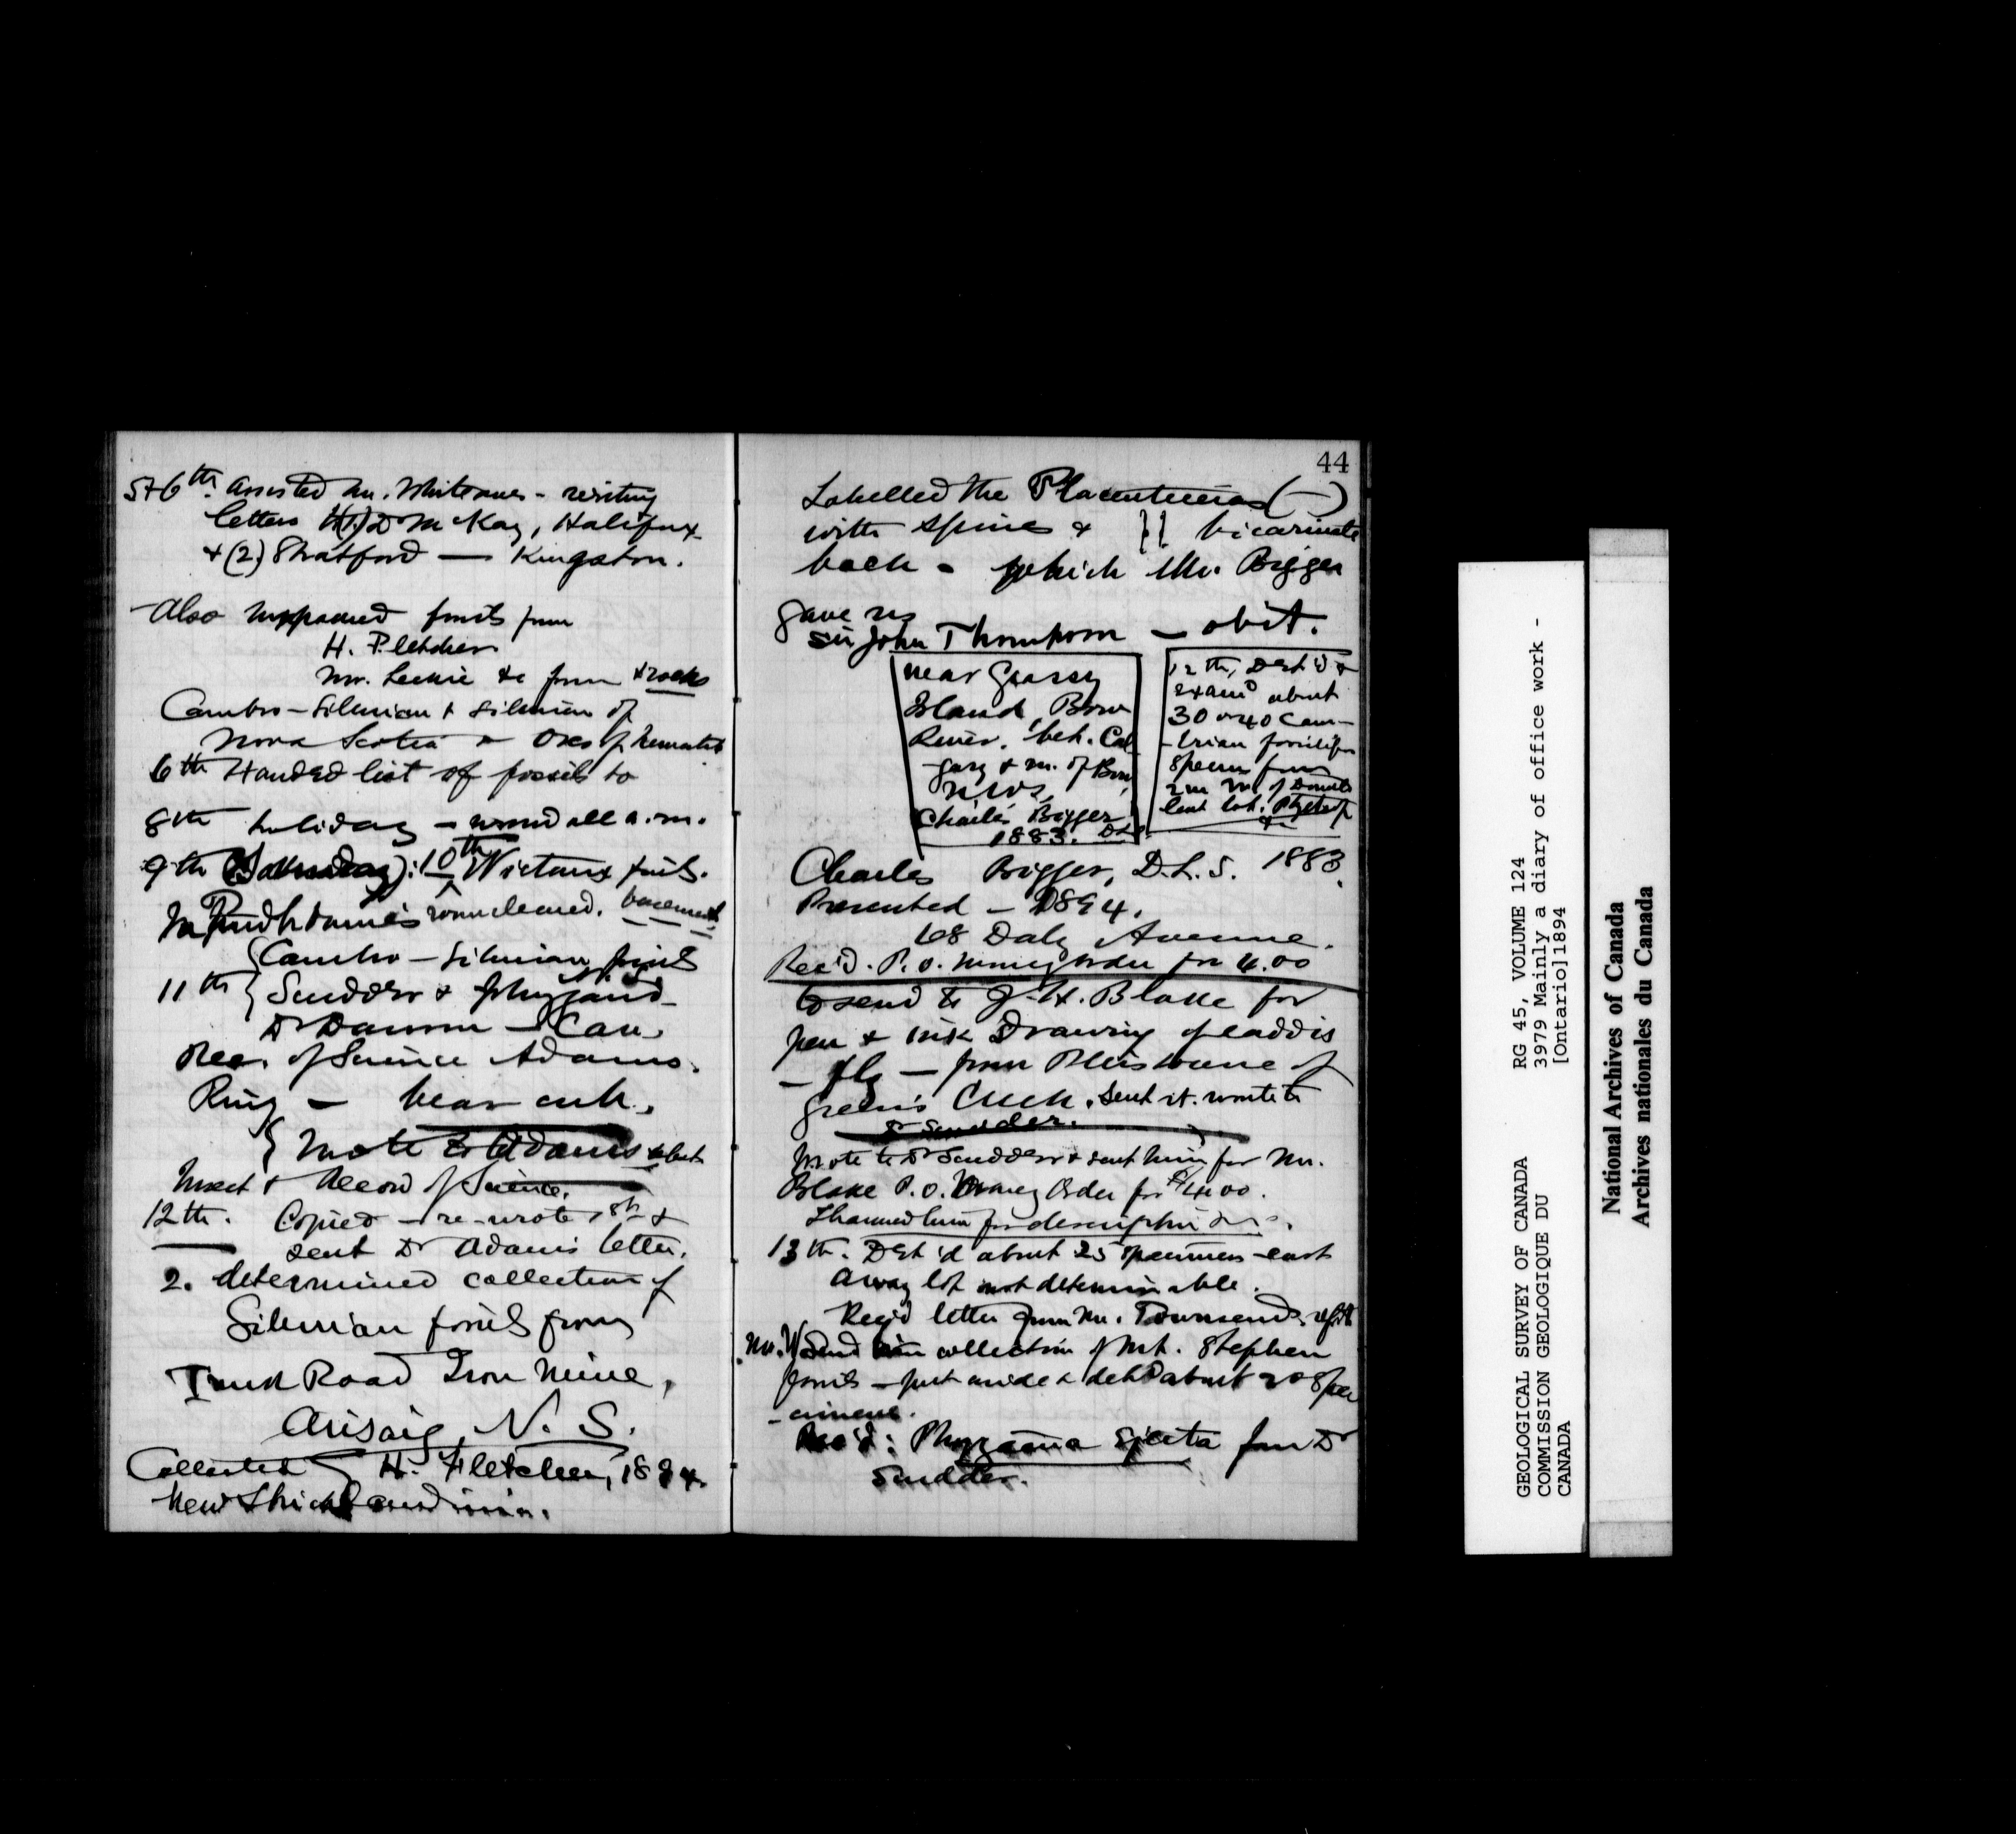 5 & 6th. assisted Mr. Whiteaves - writing
letters (1) D McKay, Halifax
& (2) Stratford — Kingston.
Also unpacked fossils from
H. Fletcher
Mr. Leckie &c from & rocks
Cambro-Silurian & Silurian of
Nova Scotia & Ores of hematite
6th Handed list of fossils to
8th holiday - all a.m.
9th (Saturday): 10th Victoria fossils.
room cleaned. basement
Cambro-Silurian fossils
11th Scudder &
Dr Dawson - Can.
Rec. of Science Adams.
Ring - bear cub.
Wrote to Adams about
Insect & Record of Science.
12th. Copied - re-wrote &
sent Dr Adams letter.
2. determined collection of
Silurian fossils from
Trunk Road Iron Mine,
Arisaig, N. S.
Collected H. Fletcher, 1894.
44
Labelled the Placenticeras (—)
with spines & bicarinate
back - which Mr. Bigger
gave us
Sir John Thompson - obit.
near Grassy
Island, Bow
River, bet. Cal-
gary & m. of Bow
River
Charles Bigger
1883. D.L.S.
12th, Det'd &
exam'd about
30 or 40 Cam-
-brian fossilif.
specim from
2 m
last lot.
Charles Bigger, D.L.S. 1883
Presented - 1894.
68 Daly Avenue.
Rec'd. P.O. money order for 4.00
to send to J. H. Blake for
pen & ink Drawing of caddis
-fly - from Pleistocene of
Green's Creek. Sent it. wrote to
Dr Scudder.
Wrote to Dr Scudder & sent him for Mr.
Blake P.O. Money Order for $4.00.
Thanked him for description
13th. Det'd about 25 specimens - last
away lot not determinable.
Rec'd letter from Mr. Townsend
Mr. W. Send him collection of Mt. Stephen
fossils - put aside & det'd about 20 spe
-cimens.
Rec'd: Phryganea ejecta from Dr
Scudder.
GEOLOGICAL SURVEY OF CANADA
COMMISSION GEOLOGIQUE DU
CANADA
RG 45, VOLUME 124
3979 Mainly a diary of office work -
[Ontario]1894
National Archives of Canada
Archives nationales du Canada